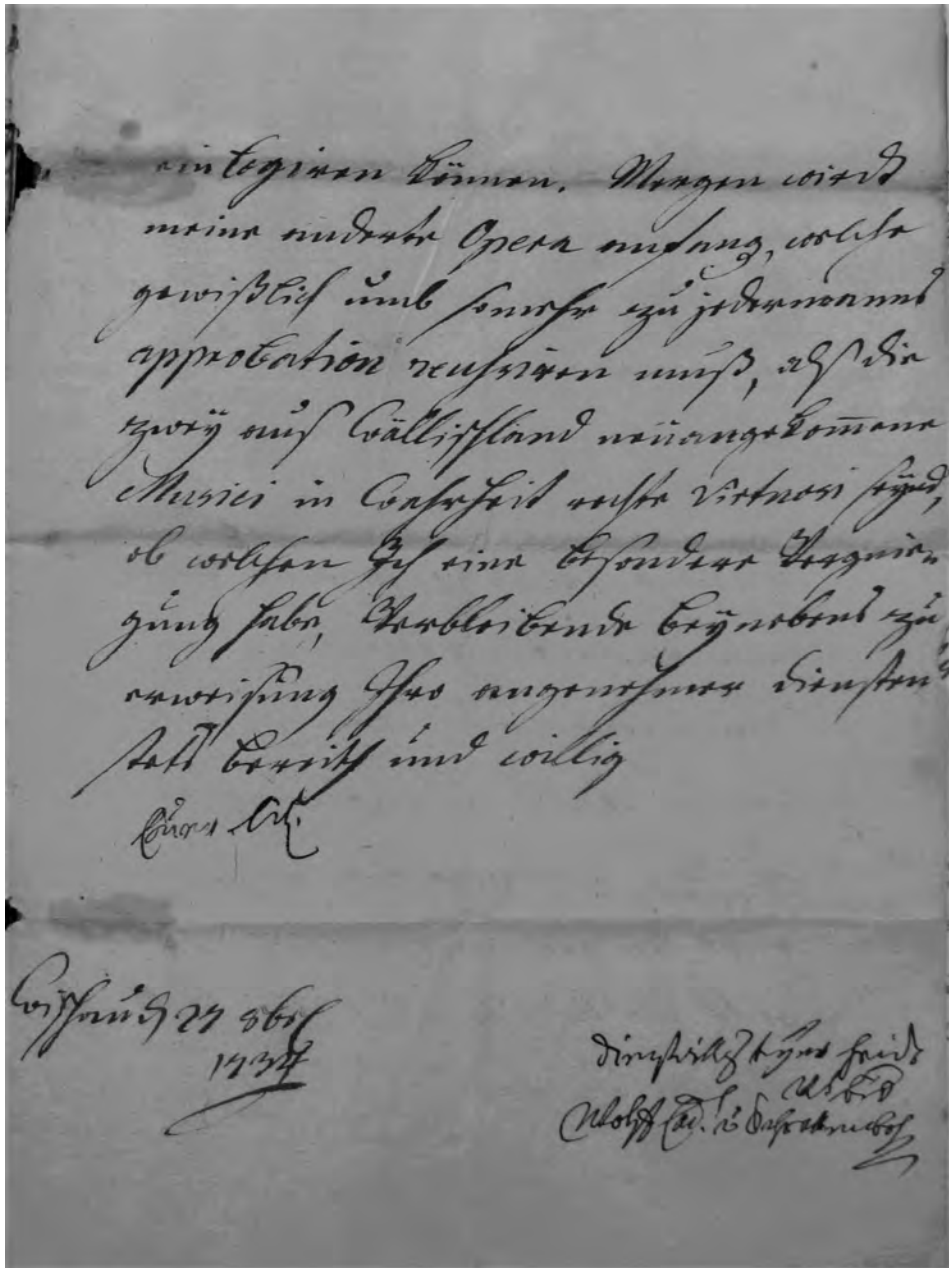 einlogiren können. Morgen wirdt
meine anderte Opera anfang, welche
gewißlich umb somehr zu jedermanns
approbation reuhsiren muß, alß die
zwey auß Wällischland neüangekommene
Musici in Wahrheit rechte Virtuosi seynd,
ob welchen Ich eine besondere Vergnie-
gung habe, Verbleibende beynebens zu
erweisung Ihro angenehmer diensten
stets bereith und willig
Euer
Wischau d 27 8br
1734
dienstwilligster
Wolff Card. v Schrattenbach